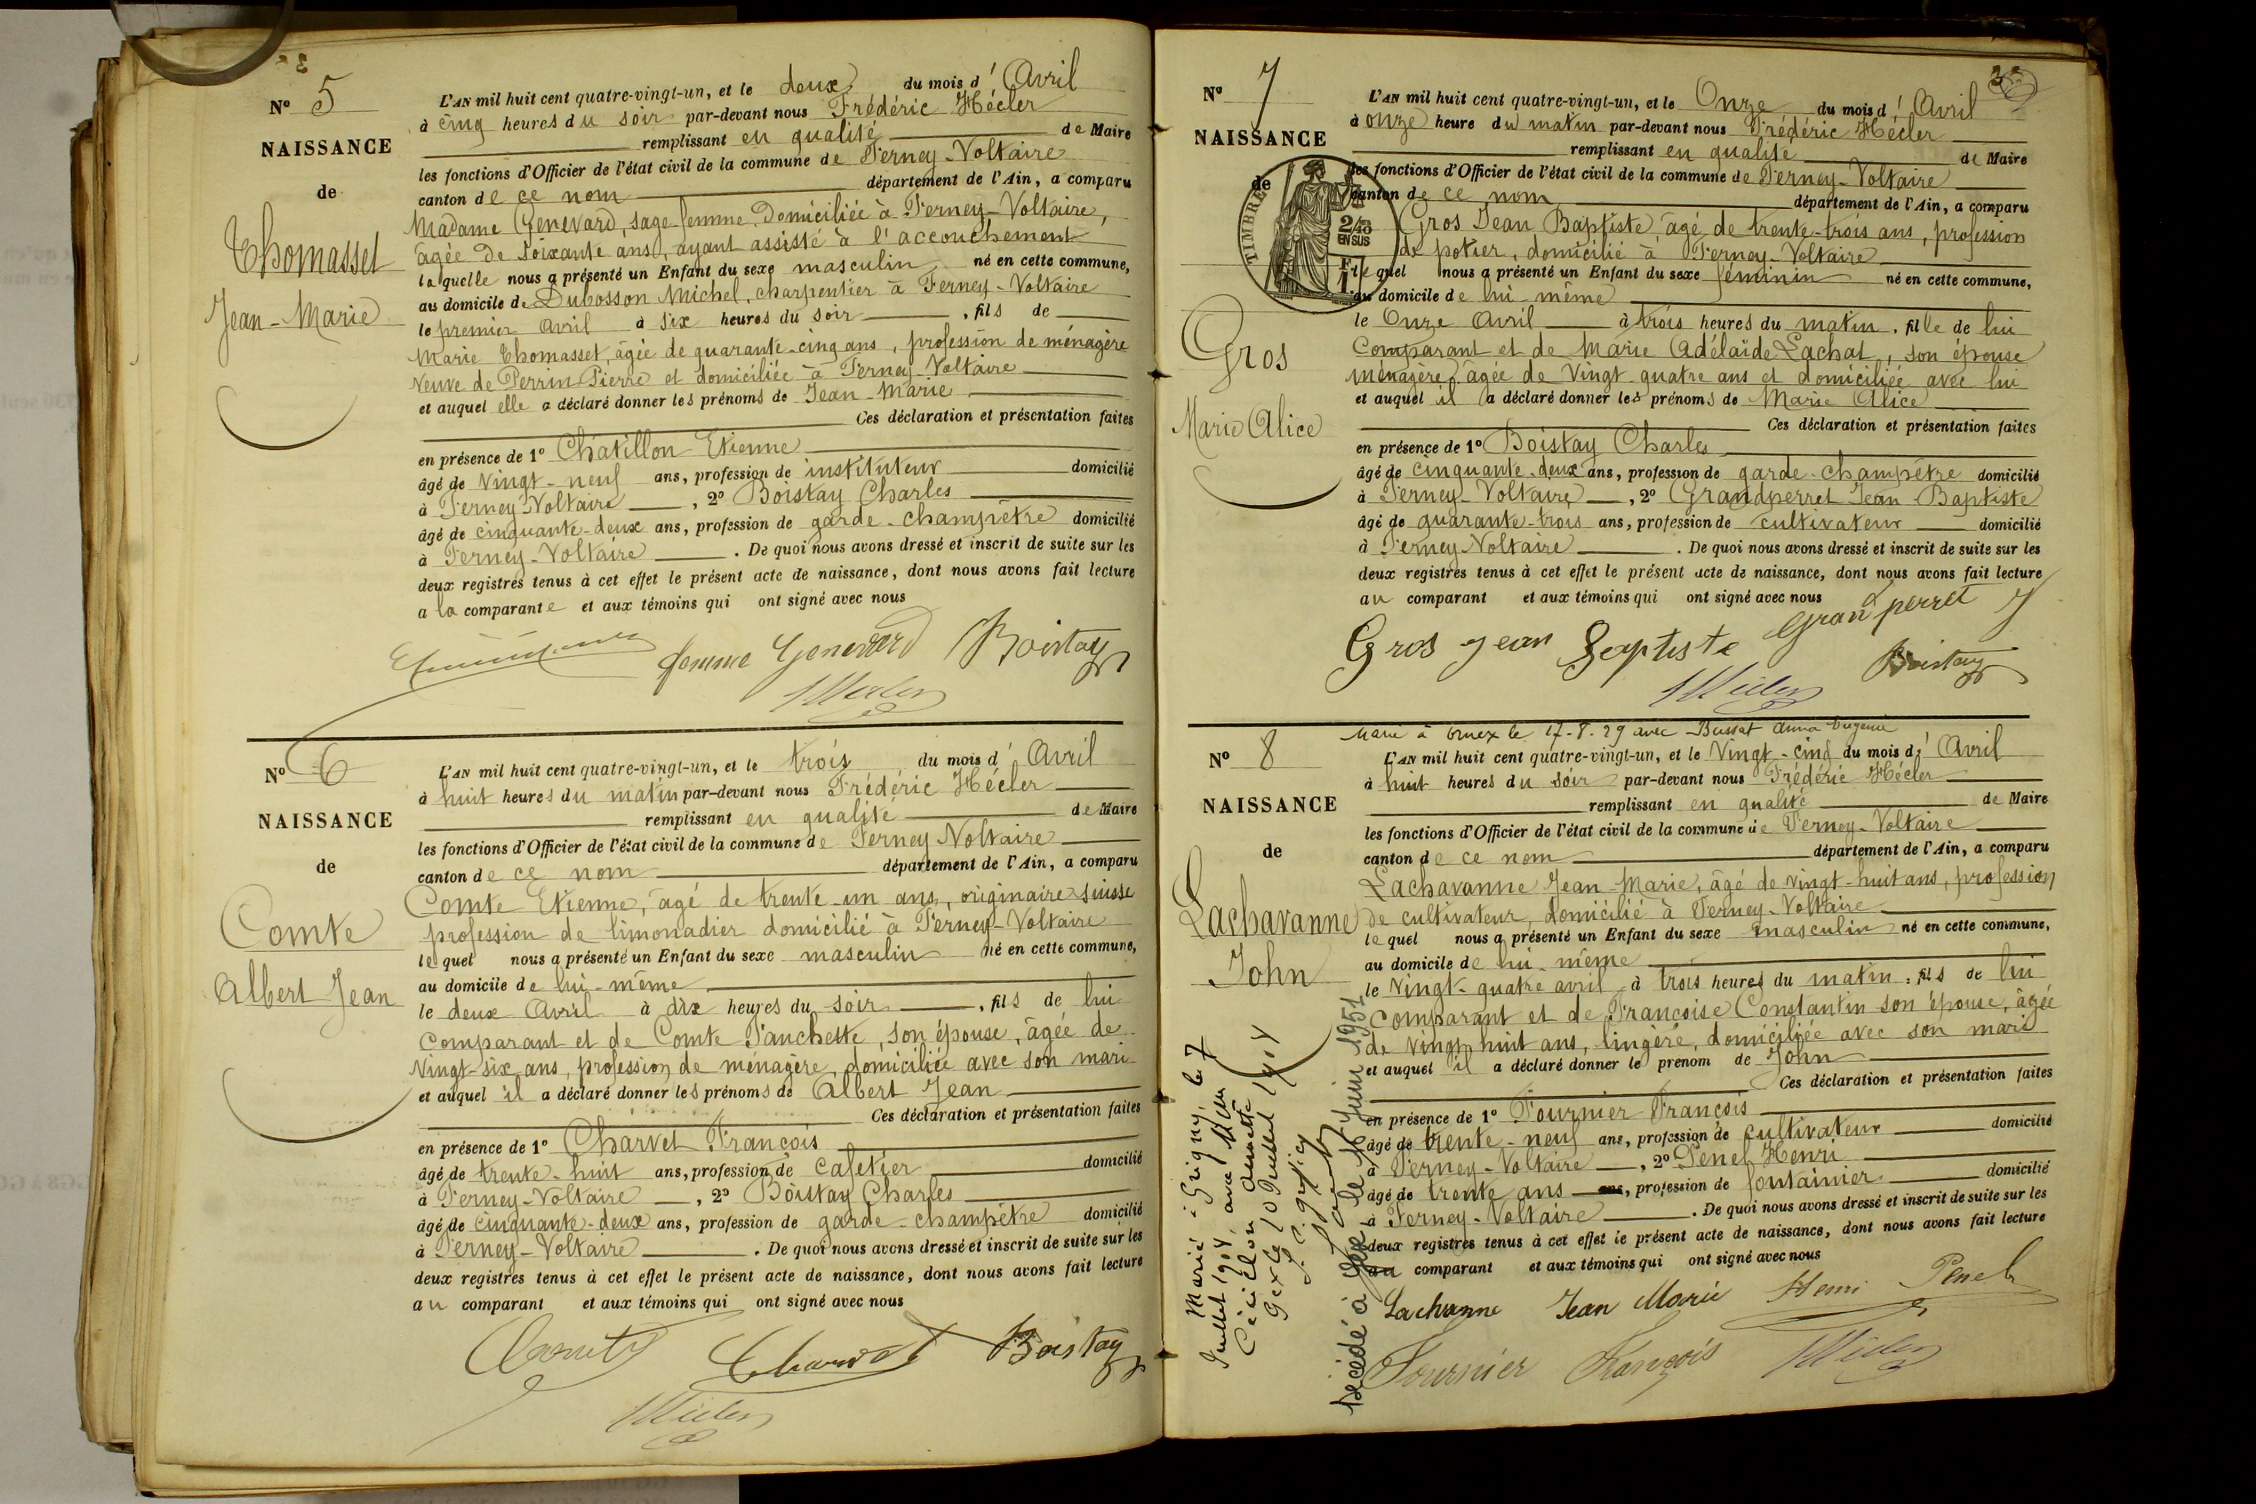 N° 5
NAISSANCE
de
Thomasset
Jean-Marie
L'AN mil huit cent quatre-vingt-un, et le deux du mois d'Avril
à cinq heures du soir par-devant nous Frédéric Hécler
remplissant en qualité de Maire
les fonctions d'Officier de l'état civil de la commune de Ferney-Voltaire
canton de ce nom département de l'Ain, a comparu
Madame Genevard, sage femme, domiciliée à Ferney-Voltaire,
âgée de soixante ans, ayant assisté à l'accouchement
laquelle nous a présenté un Enfant du sexe masculin né en cette commune,
au domicile de Dubosson Michel, charpentier à Ferney-Voltaire
le premier Avril à six heures du soir, fils de
Marie Thomasset, âgée de quarante-cinq ans, profession de ménagère
veuve de Perrin Pierre et domiciliée à Ferney-Voltaire
et auquel elle a déclaré donner les prénoms de Jean-Marie
Ces déclaration et présentation faites
en présence de 1° Chatillon Etienne
âgé de vingt-neuf ans, profession de instituteur domicilié
à Ferney-Voltaire, 2° Boistay Charles
âgé de cinquante-deux ans, profession de garde-champêtre domicilié
à Ferney-Voltaire. De quoi nous avons dressé et inscrit de suite sur les
deux registres tenus à cet effet le présent acte de naissance, dont nous avons fait lecture
a la comparante et aux témoins qui ont signé avec nous
femme Genevard Boistay
Hécler
N° 6
NAISSANCE
de
Comte
Albert Jean
L'AN mil huit cent quatre-vingt-un, et le trois du mois d'Avril
à huit heures du matin par-devant nous Frédéric Hécler
remplissant en qualité de Maire
les fonctions d'Officier de l'état civil de la commune de Ferney-Voltaire
canton de ce nom département de l'Ain, a comparu
Comte Etienne, âgé de trente-un ans, originaire suisse
profession de limonadier domicilié à Ferney-Voltaire
lequel nous a présenté un Enfant du sexe masculin né en cette commune,
au domicile de lui-même
le deux Avril à dix heures du soir, fils de lui
comparant et de Comte Fanchette, son épouse, âgée de
vingt-six ans, profession de ménagère, domiciliée avec son mari
et auquel il a déclaré donner les prénoms de Albert Jean
Ces déclaration et présentation faites
en présence de 1° Charvet François
âgé de trente-huit ans, profession de cafetier domicilié
à Ferney-Voltaire, 2° Boistay Charles
âgé de cinquante-deux ans, profession de garde-champêtre domicilié
à Ferney-Voltaire. De quoi nous avons dressé et inscrit de suite sur les
deux registres tenus à cet effet le présent acte de naissance, dont nous avons fait lecture
au comparant et aux témoins qui ont signé avec nous
Comte Charvet Boistay
Hécler
N° 7
NAISSANCE
de
TIMBRE
2/10
EN SUS
Gros
Marie Alice
L'AN mil huit cent quatre-vingt-un, et le Onze du mois d'Avril
à onze heure du matin par-devant nous Frédéric Hécler
remplissant en qualité de Maire
les fonctions d'Officier de l'état civil de la commune de Ferney-Voltaire
canton de ce nom département de l'Ain, a comparu
Gros Jean Baptiste, âgé de trente-trois ans, profession
de potier, domicilié à Ferney-Voltaire
lequel nous a présenté un Enfant du sexe féminin né en cette commune,
au domicile de lui-même
le Onze Avril à trois heures du matin, fille de lui
comparant et de Marie Adélaïde Lachat, son épouse
ménagère, âgée de vingt-quatre ans et domiciliée avec lui
et auquel il a déclaré donner les prénoms de Marie Alice
Ces déclaration et présentation faites
en présence de 1° Boistay Charles
âgé de cinquante-deux ans, profession de garde-champêtre domicilié
à Ferney-Voltaire, 2° Grandperret Jean-Baptiste
âgé de quarante-trois ans, profession de cultivateur domicilié
à Ferney-Voltaire. De quoi nous avons dressé et inscrit de suite sur les
deux registres tenus à cet effet le présent acte de naissance, dont nous avons fait lecture
au comparant et aux témoins qui ont signé avec nous
Gros Jean Baptiste Granperret J
Boistay
Hécler
Marié à Ornex le 17-8-29 avec Bussat Anna Eugénie
N° 8
NAISSANCE
de
Lachavanne
John
L'AN mil huit cent quatre-vingt-un, et le Vingt-cinq du mois d'Avril
à huit heures du soir par-devant nous Frédéric Hécler
remplissant en qualité de Maire
les fonctions d'Officier de l'état civil de la commune de Ferney-Voltaire
canton de ce nom département de l'Ain, a comparu
Lachavanne Jean-Marie, âgé de vingt-huit ans, profession
de cultivateur, domicilié à Ferney-Voltaire
lequel nous a présenté un Enfant du sexe masculin né en cette commune,
au domicile de lui-même
le vingt-quatre avril à trois heures du matin, fils de lui
comparant et de Françoise Constantin son épouse, âgée
de vingt-huit ans, lingère, domiciliée avec son mari
et auquel il a déclaré donner le prénom de John
Ces déclaration et présentation faites
en présence de 1° Fournier François
âgé de trente-neuf ans, profession de cultivateur domicilié
à Ferney-Voltaire, 2° Penel Henri
âgé de trente ans ans, profession de fontainier domicilié
à Ferney-Voltaire. De quoi nous avons dressé et inscrit de suite sur les
deux registres tenus à cet effet le présent acte de naissance, dont nous avons fait lecture
au comparant et aux témoins qui ont signé avec nous
Lachvanne Jean Marie Henri Penel
Fournier François Hécler
Marié à Grigny, le 7
Juillet 1904, avec
Gex le 10 Juillet 1904
Décédé à Gex le Juin 1951